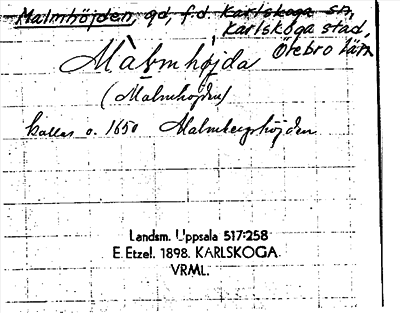 Malmhöjden, gd, f.d. Karlskoga sn,
Karlskoga stad,
Örebro län
Malmhöjda
(Malmhöjden)
kallas o. 1650 Malmbergshöjden
Landsm. Uppsala 517:258
E. Etzel. 1898. KARLSKOGA.
VRML.